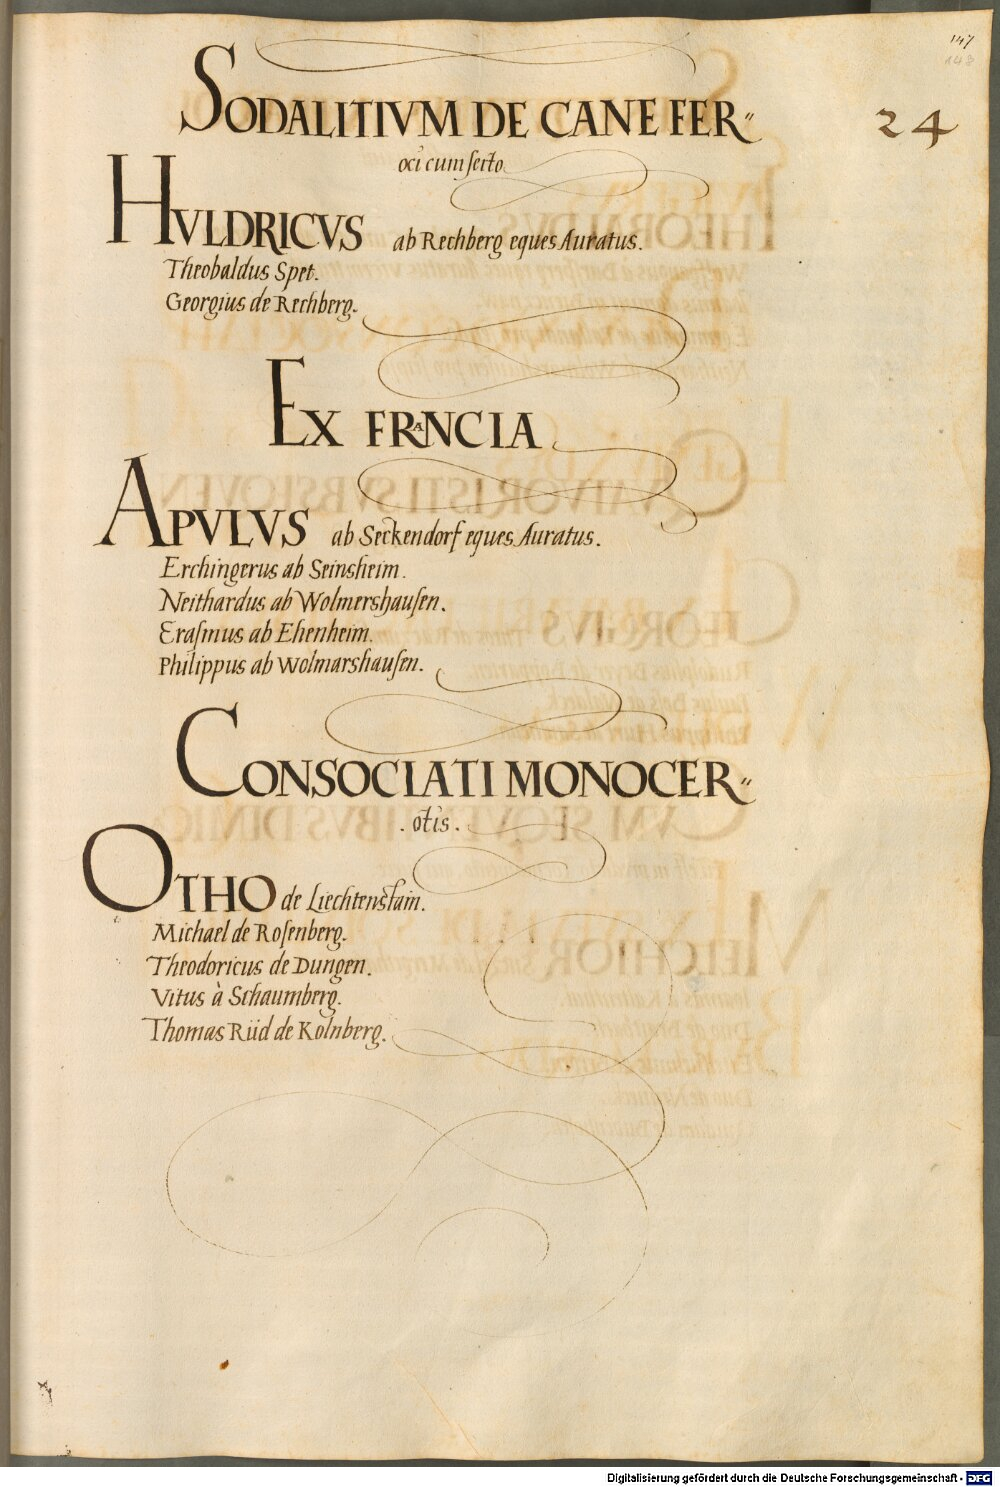 147
148
24
SODALITIVM DE CANE FER"
oci cum serto
HVLDRICVS ab Rechberg eques Auratus.
Theobaldus Spet.
Georgius de Rechberg.
EX FRANCIA
APVLVS ab Seckendorf eques Auratus.
Erchingerus ab Seinsheim.
Neithardus ab Wolmershausen.
Erasmus ab Ehenheim.
Philippus ab Wolmarshausen.
CONSOCIATI MONOCER"
. otis .
OTHO de Liechtenstain.
Michael de Rosenberg.
Theodoricus de Dungen.
Vitus à Schaumberg.
Thomas Rüd de Kolnberg.
Digitalisierung gefördert durch die Deutsche Forschungsgemeinschaft - DFG